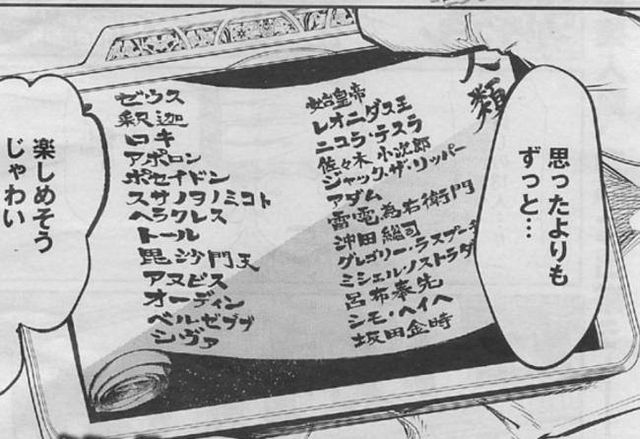 思ったよりも
ずっと…
人類
始皇帝
レオニダス王
ニコラ・テスラ
佐々木小次郎
ジャック・ザ・リッパー
アダム
雷電為右衛門
沖田総司
グレゴリー・ラスプー
ミシェル・ノストラダ
呂布奉先
シモ・ヘイヘ
坂田金時
ゼウス
釈迦
ロキ
アポロン
ポセイドン
スサノヲノミコト
ヘラクレス
トール
毘沙門天
アヌビス
オーディン
ベルゼブブ
シヴァ
楽しめそう
じゃわい